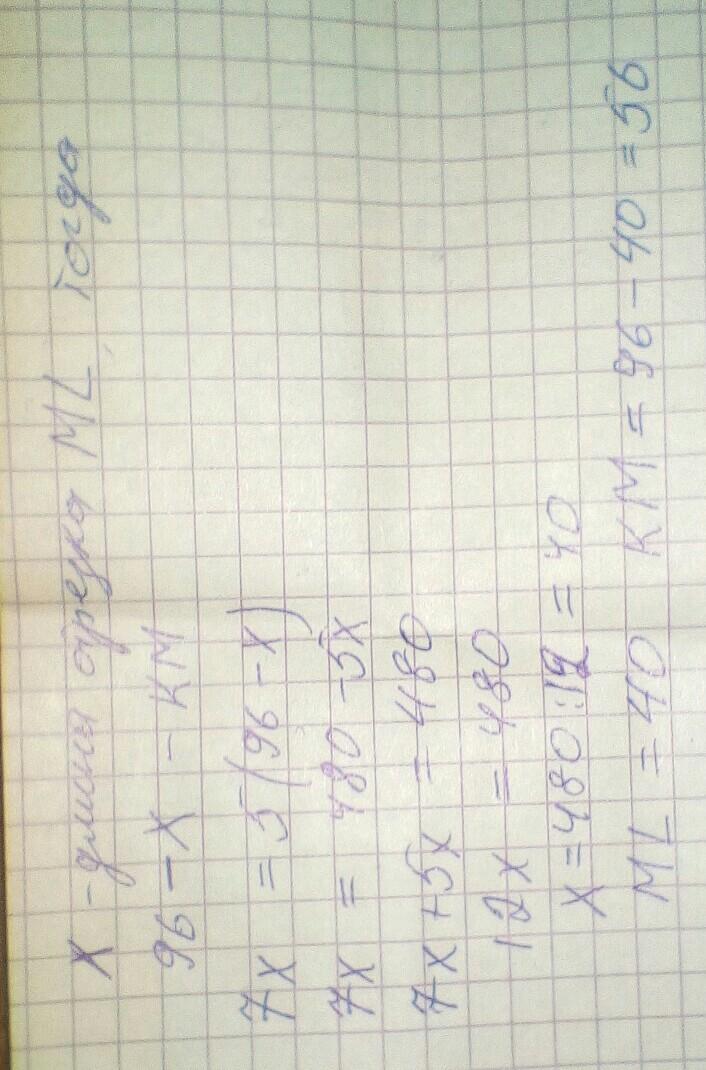 x - длина отрезка ML, тогда
96 - x - KM
7x = 5(96 - x)
7x = 480 - 5x
7x + 5x = 480
12x = 480
x = 480 : 12 = 40
ML = 40 KM = 96 - 40 = 56